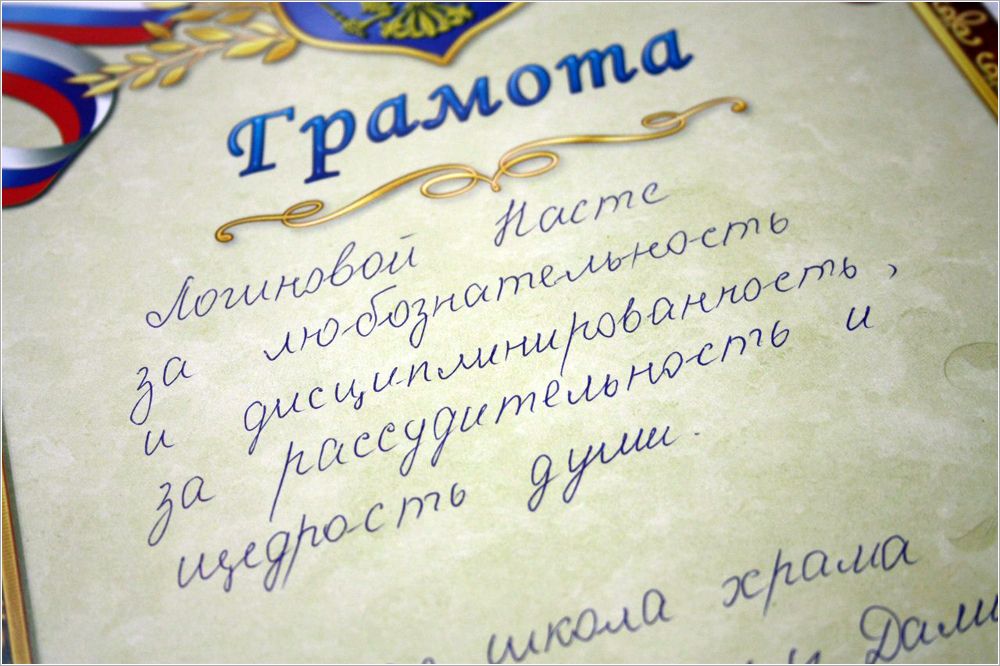 Грамота
Логиновой Насте
за любознательность
и дисциплинированность,
за рассудительность и
щедрость души.
школа храма